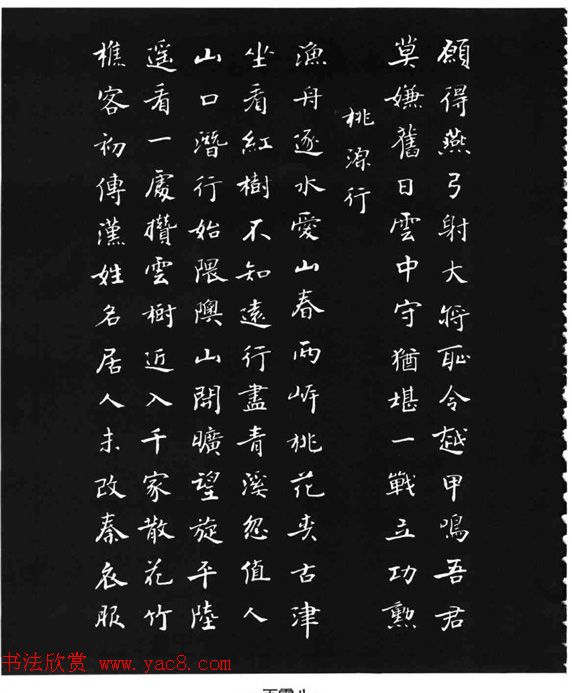 願得燕弓射大將恥令越甲鳴吾君
莫嫌舊日雲中守猶堪一戰立功勲
桃源行
漁舟逐水愛山春兩岸桃花夾古津
坐看紅樹不知遠行盡青溪忽值人
山口潛行始隈隩山開曠望旋平陸
遥看一處攢雲樹近入千家散花竹
樵客初傳漢姓名居人未改秦衣服
书法欣赏 www.yac8.com